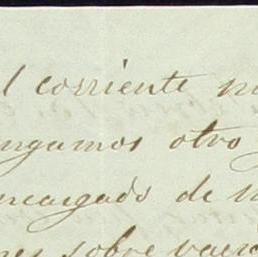 l corriente
ngamos otro
ncargado de
nes sobre